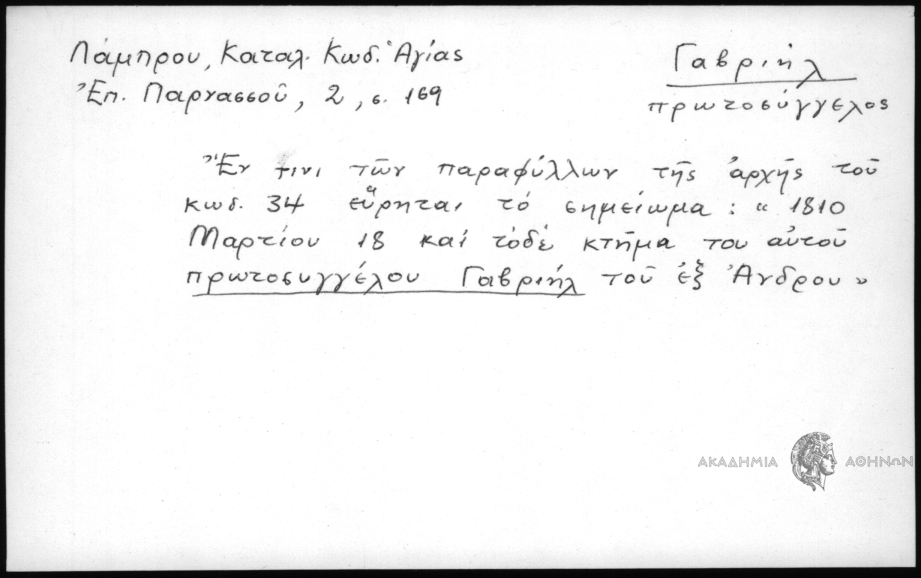 Λάμπρου, Καταλ. Κωδ. Ἁγίας
Ἐπ. Παρνασσοῦ, 2, σ. 169
Γαβριήλ
πρωτοσύγγελος
Ἔν τινι τῶν παραφύλλων τῆς ἀρχῆς τοῦ
κωδ. 34 εὕρηται τὸ σημείωμα: « 1810
Μαρτίου 18 καὶ τόδε κτῆμα του αὐτοῦ
πρωτοσυγγέλου Γαβριήλ τοῦ ἐξ Ἄνδρου »
ΑΚΑΔΗΜΙΑ ΑΘΗΝΩΝ